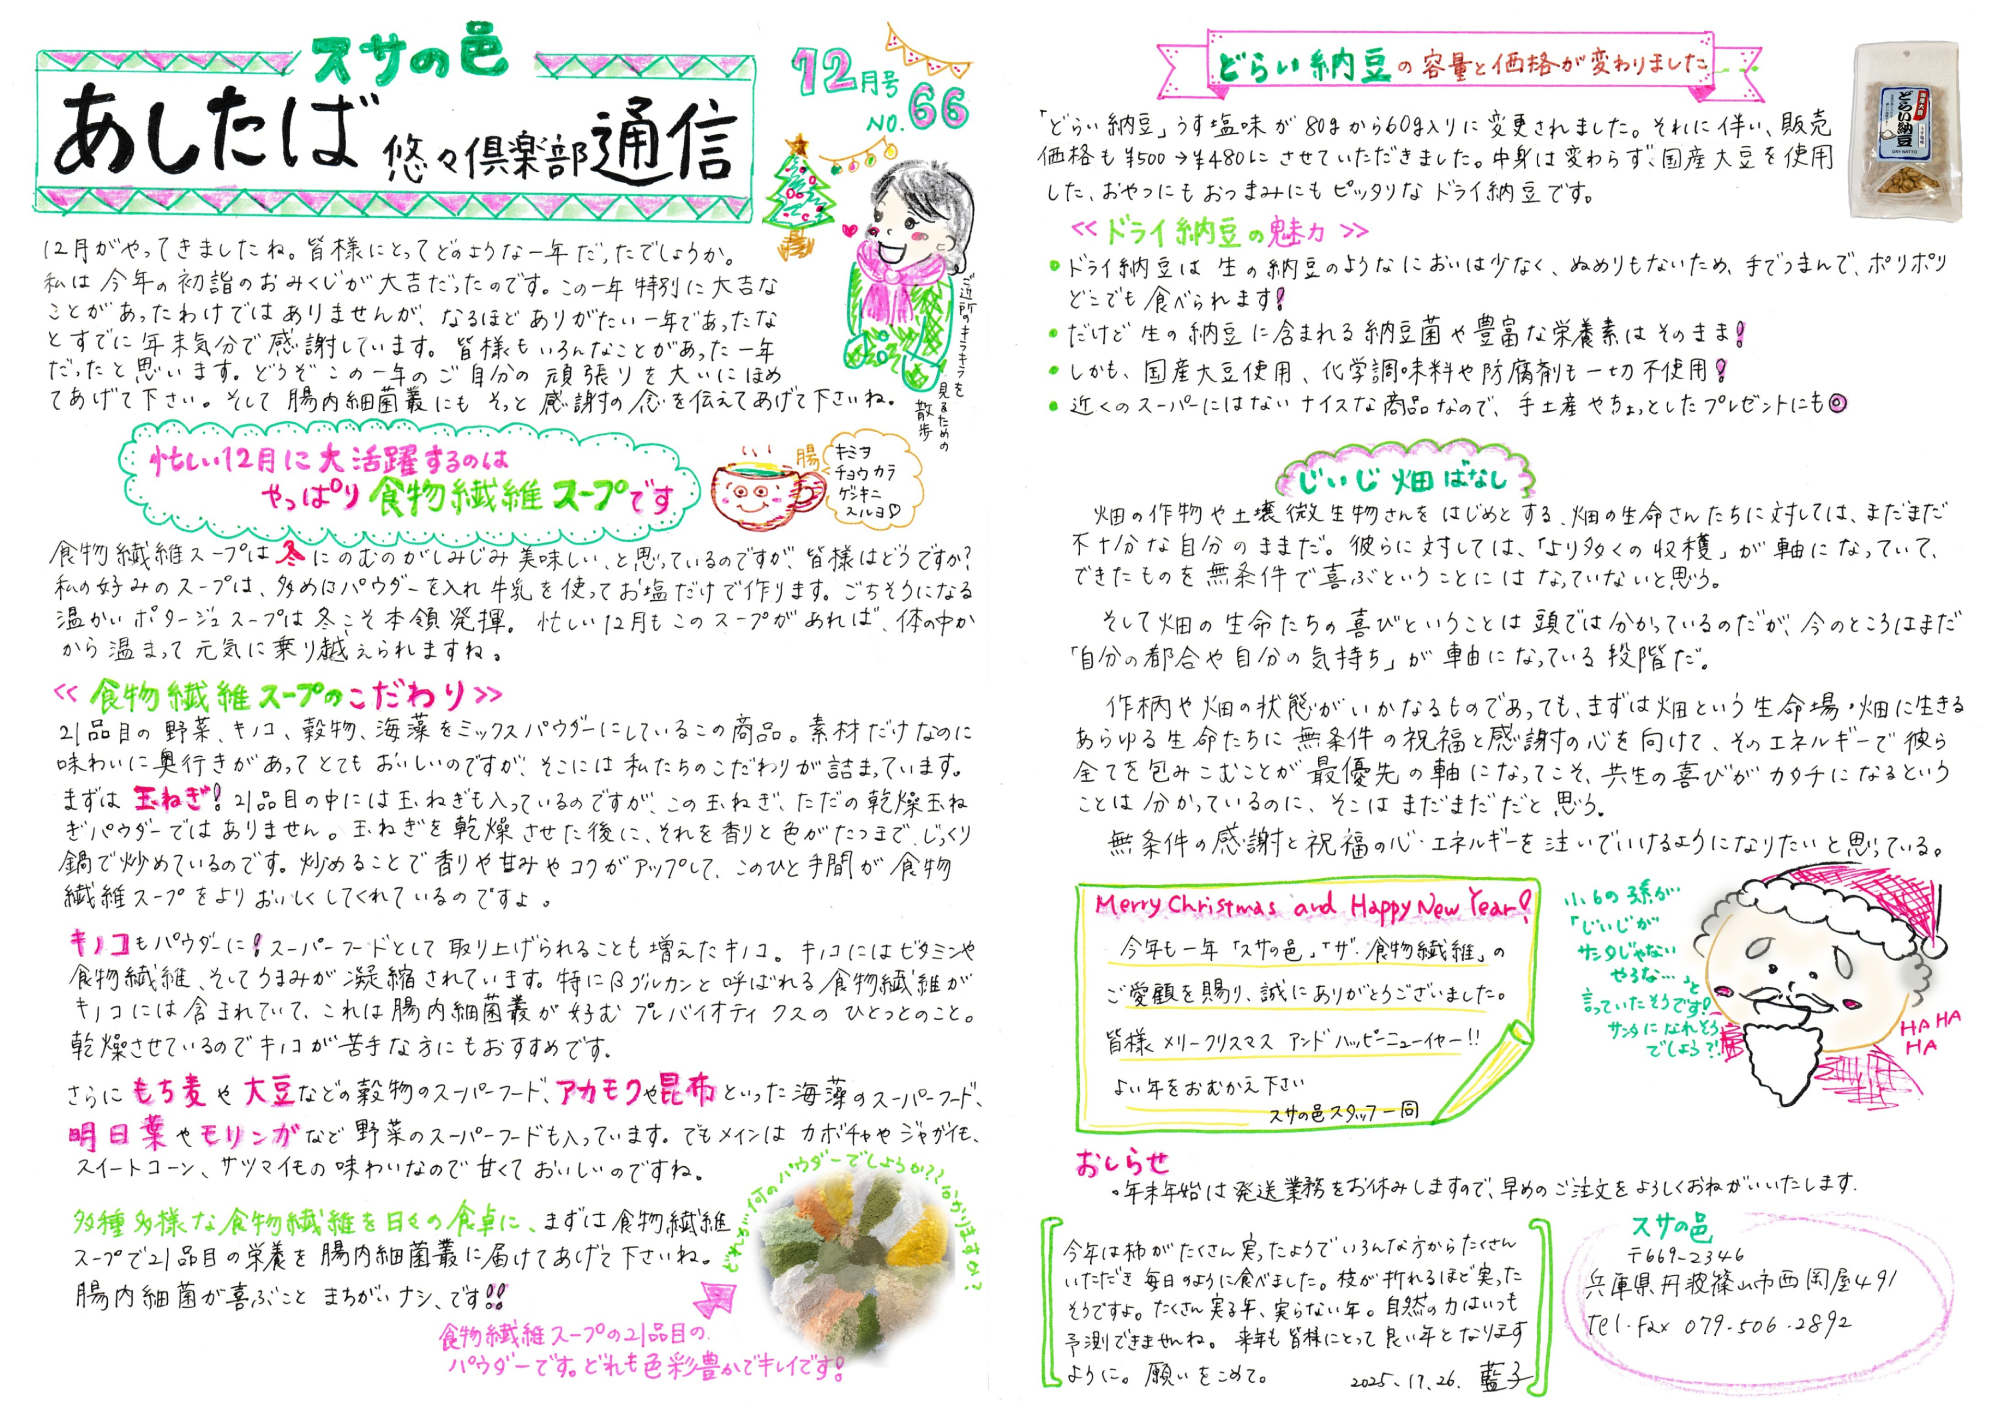 スサの邑
あしたば悠々倶楽部通信
12月号
NO.66
12月がやってきましたね。皆様にとってどのような一年だったでしょうか。
私は今年の初詣のおみくじが大吉だったのです。この一年特別に大吉な
ことがあったわけではありませんが、なるほどありがたい一年であったな
とすでに年末気分で感謝しています。皆様もいろんなことがあった一年
だったと思います。どうぞこの一年のご自分の頑張りを大いにほめ
てあげて下さい。そして腸内細菌叢にもそっと感謝の念を伝えてあげて下さいね。
ご近所のキラキラを
見るための
散歩
忙しい12月に大活躍するのは
やっぱり食物繊維スープです
腸
キミヲ
チョウカラ
ゲンキニ
スルヨ♡
食物繊維スープは冬にのむのがしみじみ美味しい、と思っているのですが、皆様はどうですか?
私の好みのスープは、多めにパウダーを入れ牛乳を使ってお塩だけで作ります。ごちそうになる
温かいポタージュスープは冬こそ本領発揮。忙しい12月もこのスープがあれば、体の中か
から温まって元気に乗り越えられますね。
<<食物繊維スープのこだわり>>
21品目の野菜、キノコ、穀物、海藻をミックスパウダーにしているこの商品。素材だけなのに
味わいに奥行きがあってとてもおいしいのですが、そこには私たちのこだわりが詰まっています。
まずは玉ねぎ!21品目の中には玉ねぎも入っているのですが、この玉ねぎ、ただの乾燥玉ね
ぎパウダーではありません。玉ねぎを乾燥させた後に、それを香りと色がたつまで、じっくり
鍋で炒めているのです。炒めることで香りや甘みやコクがアップして、このひと手間が食物
繊維スープをよりおいしくしてくれているのですよ。
キノコもパウダーに!スーパーフードとして取り上げられることも増えたキノコ。キノコにはビタミンや
食物繊維、そしてうまみが凝縮されています。特にβグルカンと呼ばれる食物繊維が
キノコには含まれていて、これは腸内細菌叢が好むプレバイオティクスのひとつとのこと。
乾燥させているのでキノコが苦手な方にもおすすめです。
さらにもち麦や大豆などの穀物のスーパーフード、アカモクや昆布といった海藻のスーパーフード、
明日葉やモリンガなど野菜のスーパーフードも入っています。でもメインはカボチャやジャガイモ、
スイートコーン、サツマイモの味わいなので甘くておいしいのですね。
多種多様な食物繊維を日々の食卓に、まずは食物繊維
スープで21品目の栄養を腸内細菌叢に届けてあげて下さいね。
腸内細菌が喜ぶことまちがいナシ、です!!
どれが何のパウダーでしょうか??わかりますか?
食物繊維スープの21品目の
パウダーです。どれも色彩豊かでキレイです!
どらい納豆の容量と価格が変わりました
国産大豆
どらい納豆
DRY NATTO
「どらい納豆」うす塩味が80gから60g入りに変更されました。それに伴い、販売
価格も¥500→¥480にさせていただきました。中身は変わらず、国産大豆を使用
した、おやつにもおつまみにもピッタリなドライ納豆です。
<<ドライ納豆の魅力>>
•ドライ納豆は生の納豆のようなにおいは少なく、ぬめりもないため、手でつまんで、ポリポリ
どこでも食べられます!
•だけど生の納豆に含まれる納豆菌や豊富な栄養素はそのまま!
•しかも、国産大豆使用、化学調味料や防腐剤も一切不使用!
•近くのスーパーにはないナイスな商品なので、手土産やちょっとしたプレゼントにも◎
じいじ畑ばなし
畑の作物や土壌微生物さんをはじめとする、畑の生命さんたちに対しては、まだまだ
不十分な自分のままだ。彼らに対しては、「より多くの収穫」が軸になっていて、
できたものを無条件で喜ぶということにはなっていないと思う。
そして畑の生命たちの喜びということは頭では分かっているのだが、今のところはまだ
「自分の都合や自分の気持ち」が軸になっている段階だ。
作柄や畑の状態がいかなるものであっても、まずは畑という生命場・畑に生きる
あらゆる生命たちに無条件の祝福と感謝の心を向けて、そのエネルギーで彼ら
全てを包みこむことが最優先の軸になってこそ、共生の喜びがカタチになるという
ことは分かっているのに、そこはまだまだだと思う。
無条件の感謝と祝福の心・エネルギーを注いでいけるようになりたいと思っている。
Merry Christmas and Happy New Year!
今年も一年「スサの邑」「ザ・食物繊維」の
ご愛顧を賜り、誠にありがとうございました。
皆様メリークリスマス アンドハッピーニューイヤー!!
よい年をおむかえ下さい
スサの邑スタッフ一同
小6の孫が
「じいじが
サンタじゃない
やろな…」と
言っていたそうです!
サンタになれそう
でしょう?!
HA HA
HA
おしらせ
•年末年始は発送業務をお休みしますので、早めのご注文をよろしくおねがいいたします.
今年は柿がたくさん実ったようでいろんな方からたくさん
いただき毎日のように食べました。枝が折れるほど実った
そうですよ。たくさん実る年、実らない年。自然の力はいつも
予測できませんね。来年も皆様にとって良い年となります
ように。願いをこめて。
2025.11.26. 藍子
スサの邑
〒669-2346
兵庫県丹波篠山市西岡屋491
tel・fax 079-506-2892